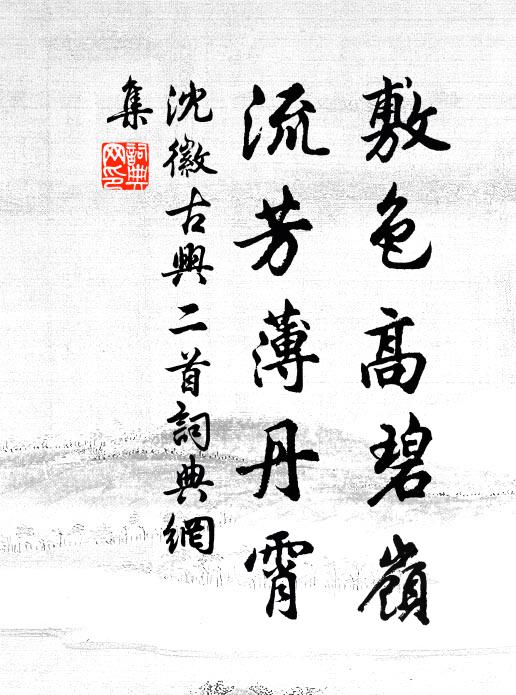 敷色高碧嶺
流芳薄丹霄
沈徽古興二首詞典網
集
詞典網印